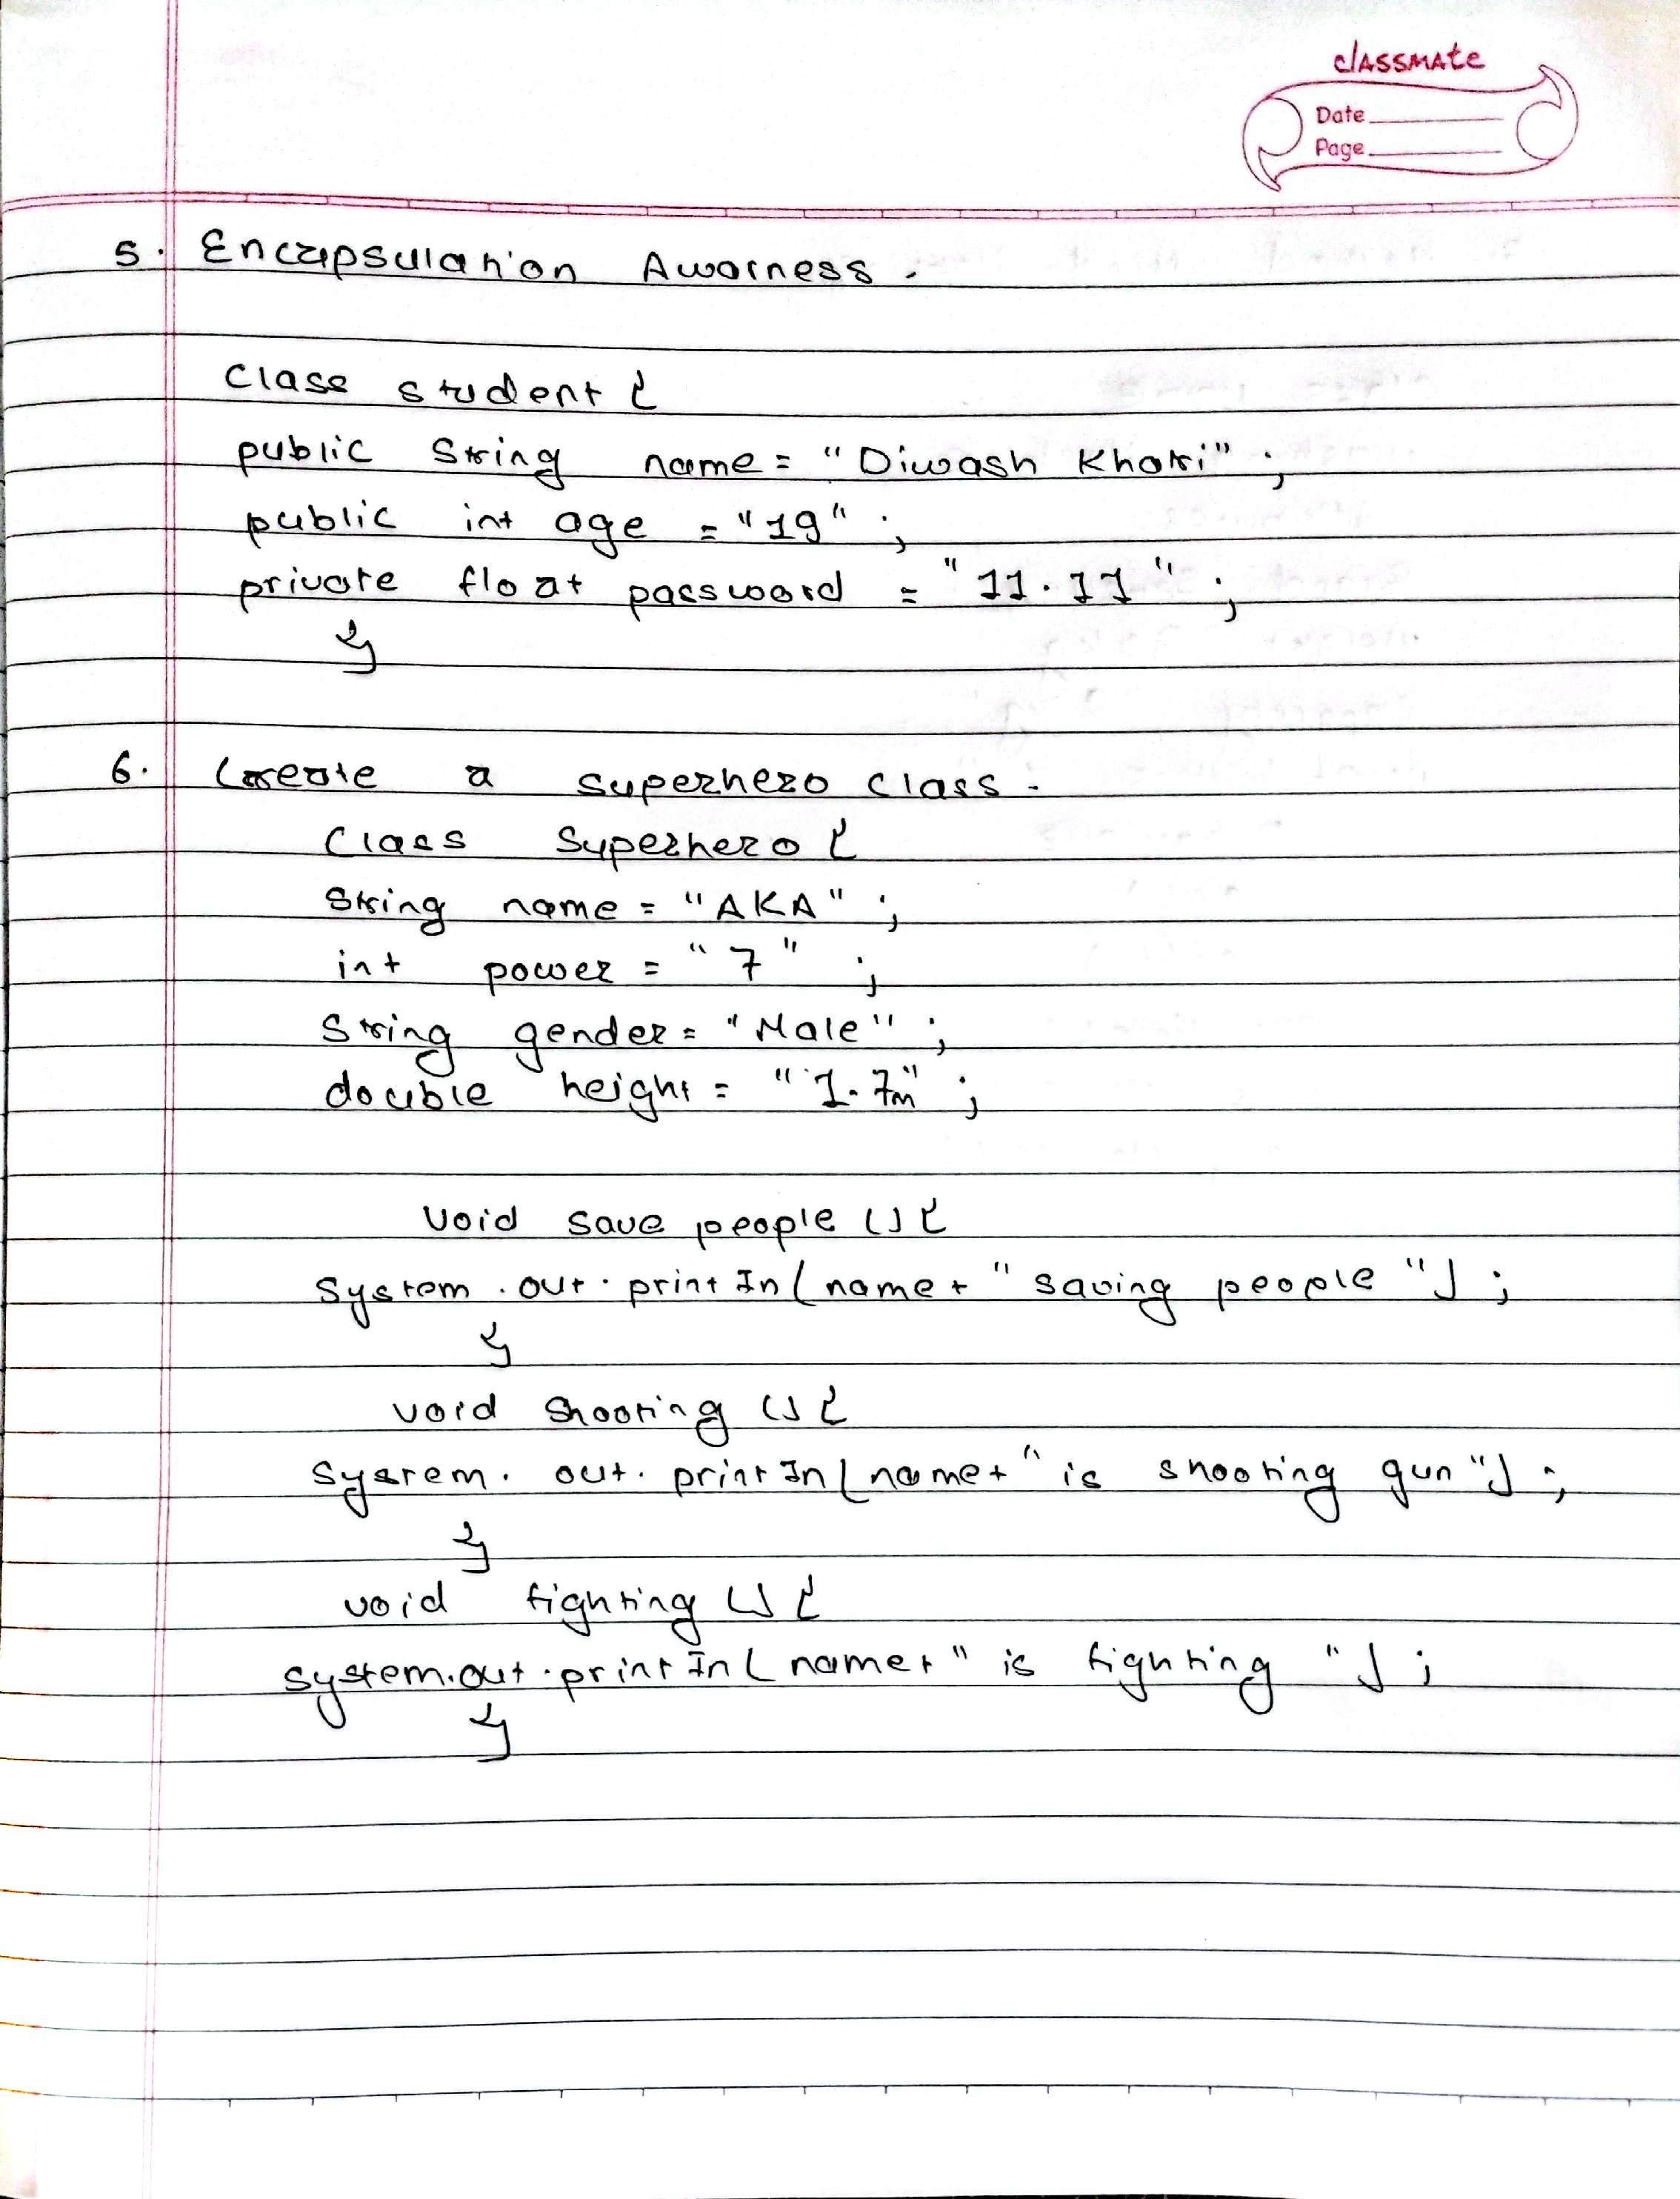 classmate
Date
Page
5. Encapsulation Awarness.
Class student {
public String name = "Diwash Khatri" ;
public int age = "19" ;
private float password = "11.11" ;
}
6. Create a superhero class.
Class Superhero {
String name = "AKA" ;
int power = "7" ;
String gender = "Male" ;
double height = "1.7m" ;
void save people () {
System.out.printIn(name+ "saving people") ;
}
void shooting () {
System.out.printIn(name+ "is shooting gun") ;
}
void fighting () {
system.out.printIn(name+" is fighting ") ;
}